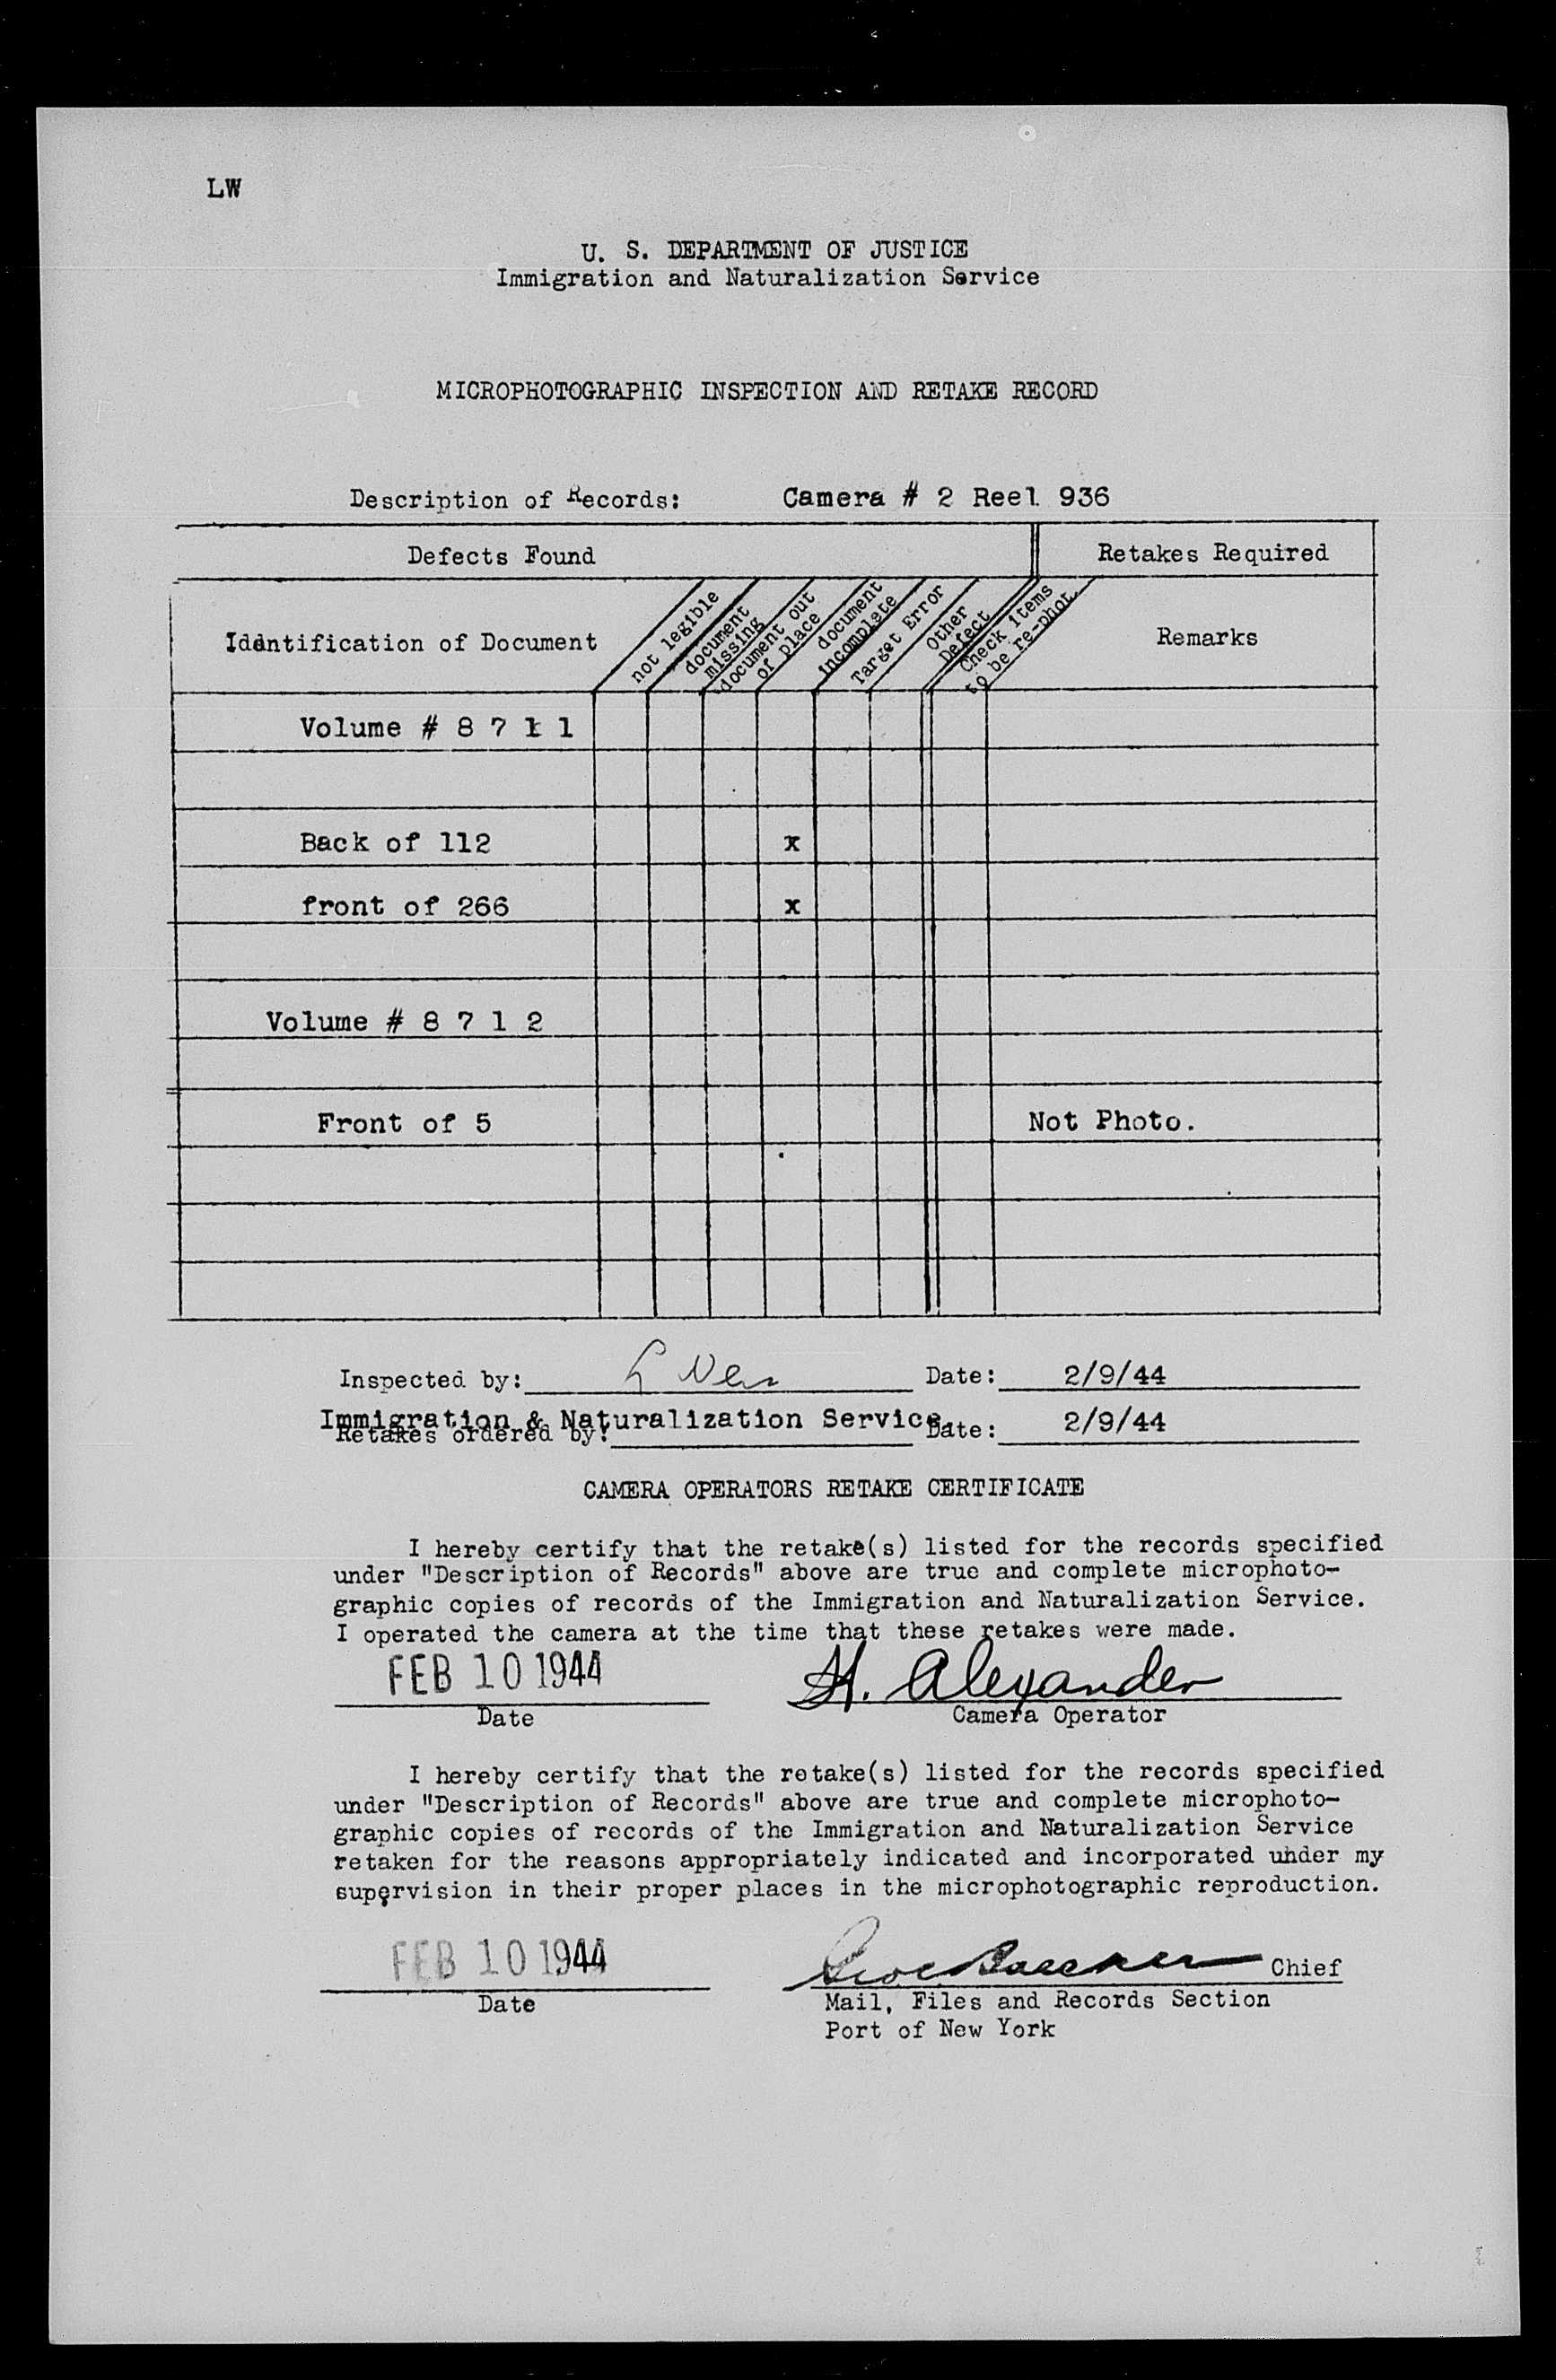 LW
U. S. DEPARTMENT OF JUSTICE
Immigration and Naturalization Service
MICROPHOTOGRAPHIC INSPECTION AND RETAKE RECORD
Description of Records: Camera # 2 Reel 936
Defects Found Retakes Required
Identification of Document
not legible
document missing
document out of place
document incomplete
Target Error
Other Defect
Check items to be re-phot.
Remarks
Volume # 8 7 1 1
Back of 112 x
front of 266 x
Volume # 8 7 1 2
Front of 5 Not Photo.
Inspected by: Date: 2/9/44
Immigration & Naturalization Service
Retakes ordered by: Date: 2/9/44
CAMERA OPERATORS RETAKE CERTIFICATE
I hereby certify that the retake(s) listed for the records specified
under "Description of Records" above are true and complete microphoto-
graphic copies of records of the Immigration and Naturalization Service.
I operated the camera at the time that these retakes were made.
FEB 10 1944 H. Alexander
Date Camera Operator
I hereby certify that the retake(s) listed for the records specified
under "Description of Records" above are true and complete microphoto-
graphic copies of records of the Immigration and Naturalization Service
retaken for the reasons appropriately indicated and incorporated under my
supervision in their proper places in the microphotographic reproduction.
FEB 10 1944 Chief
Date Mail, Files and Records Section
Port of New York